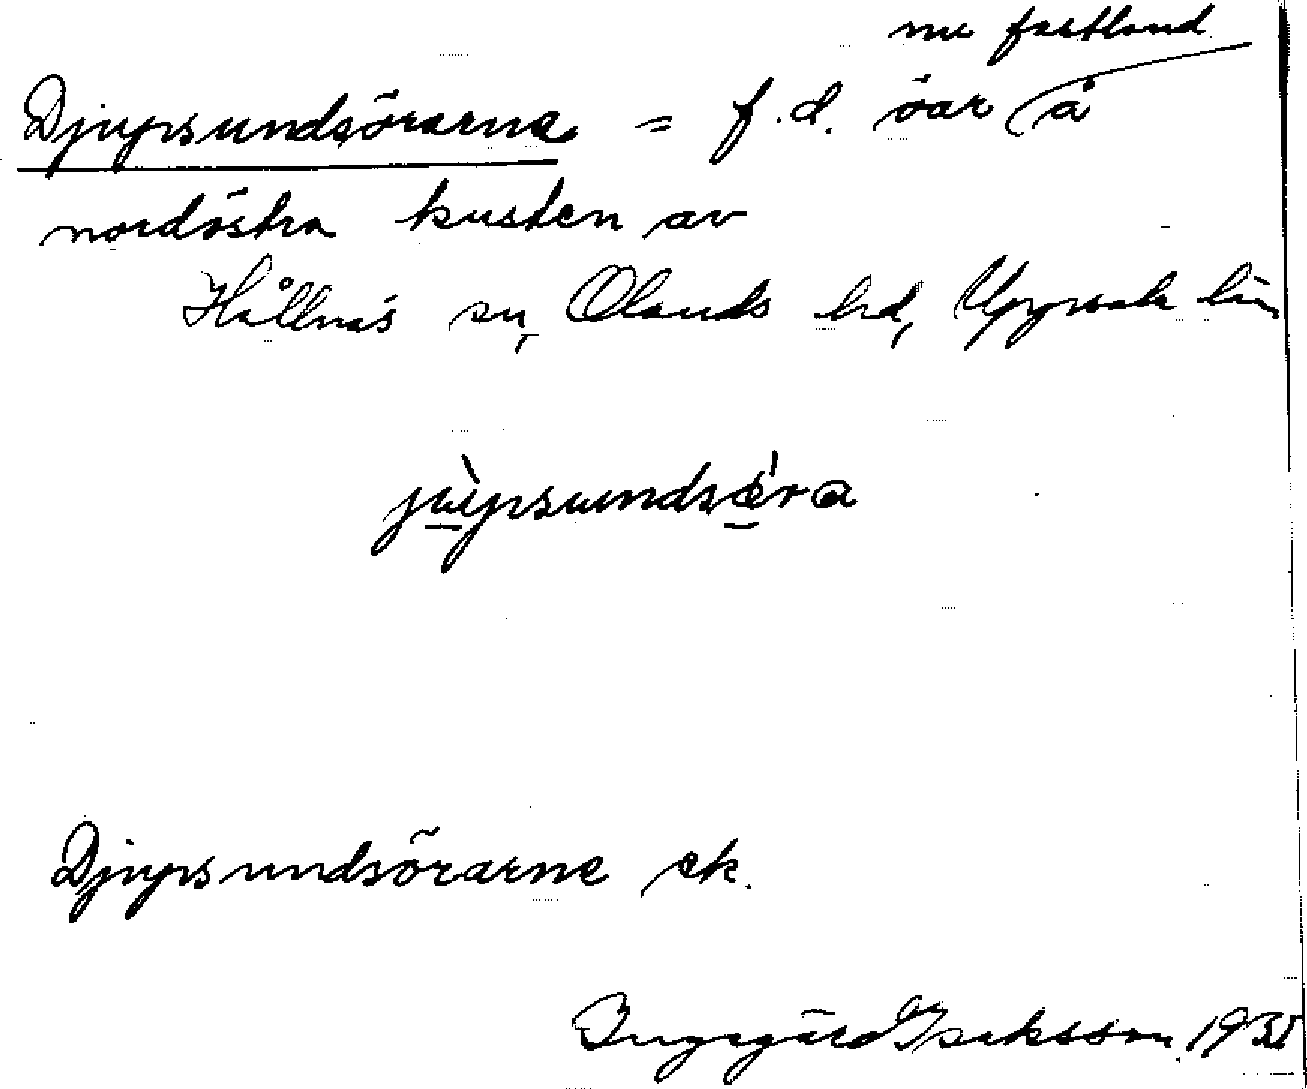 nu fastland
Djupsundsörarne = f.d. öar (å
nordöstra kusten av
Hållnäs sn, Olands hd, Uppsala län
jùpsundsǿra
Djupsundsörarne ek.
Ingegärd Isaksson